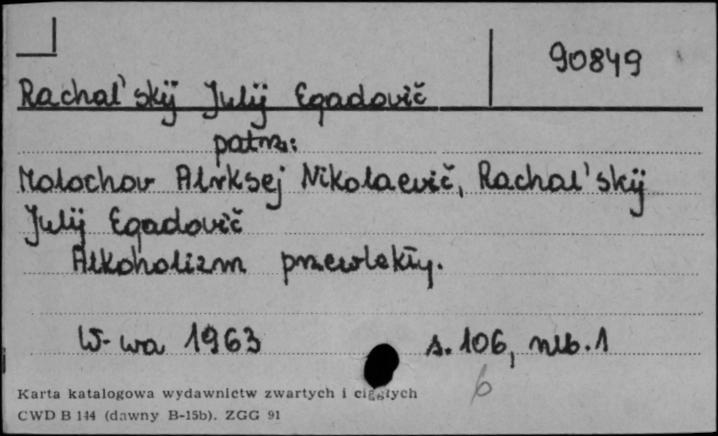 90849
Rachal'skij Julij Egadovič
patrz:
Molochov Aleksej Nikolaevič, Rachal'skij
Julij Egadovič
Alkoholizm przewlekły.
W-wa 1963 s. 106, nlb. 1
6
Karta katalogowa wydawnictw zwartych i ciągłych
CWD B 144 (dawny B-15b). ZGG 91